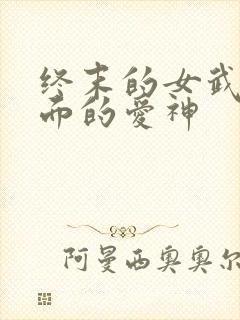 终末的女武
而的爱神
阿曼西奥奥尔